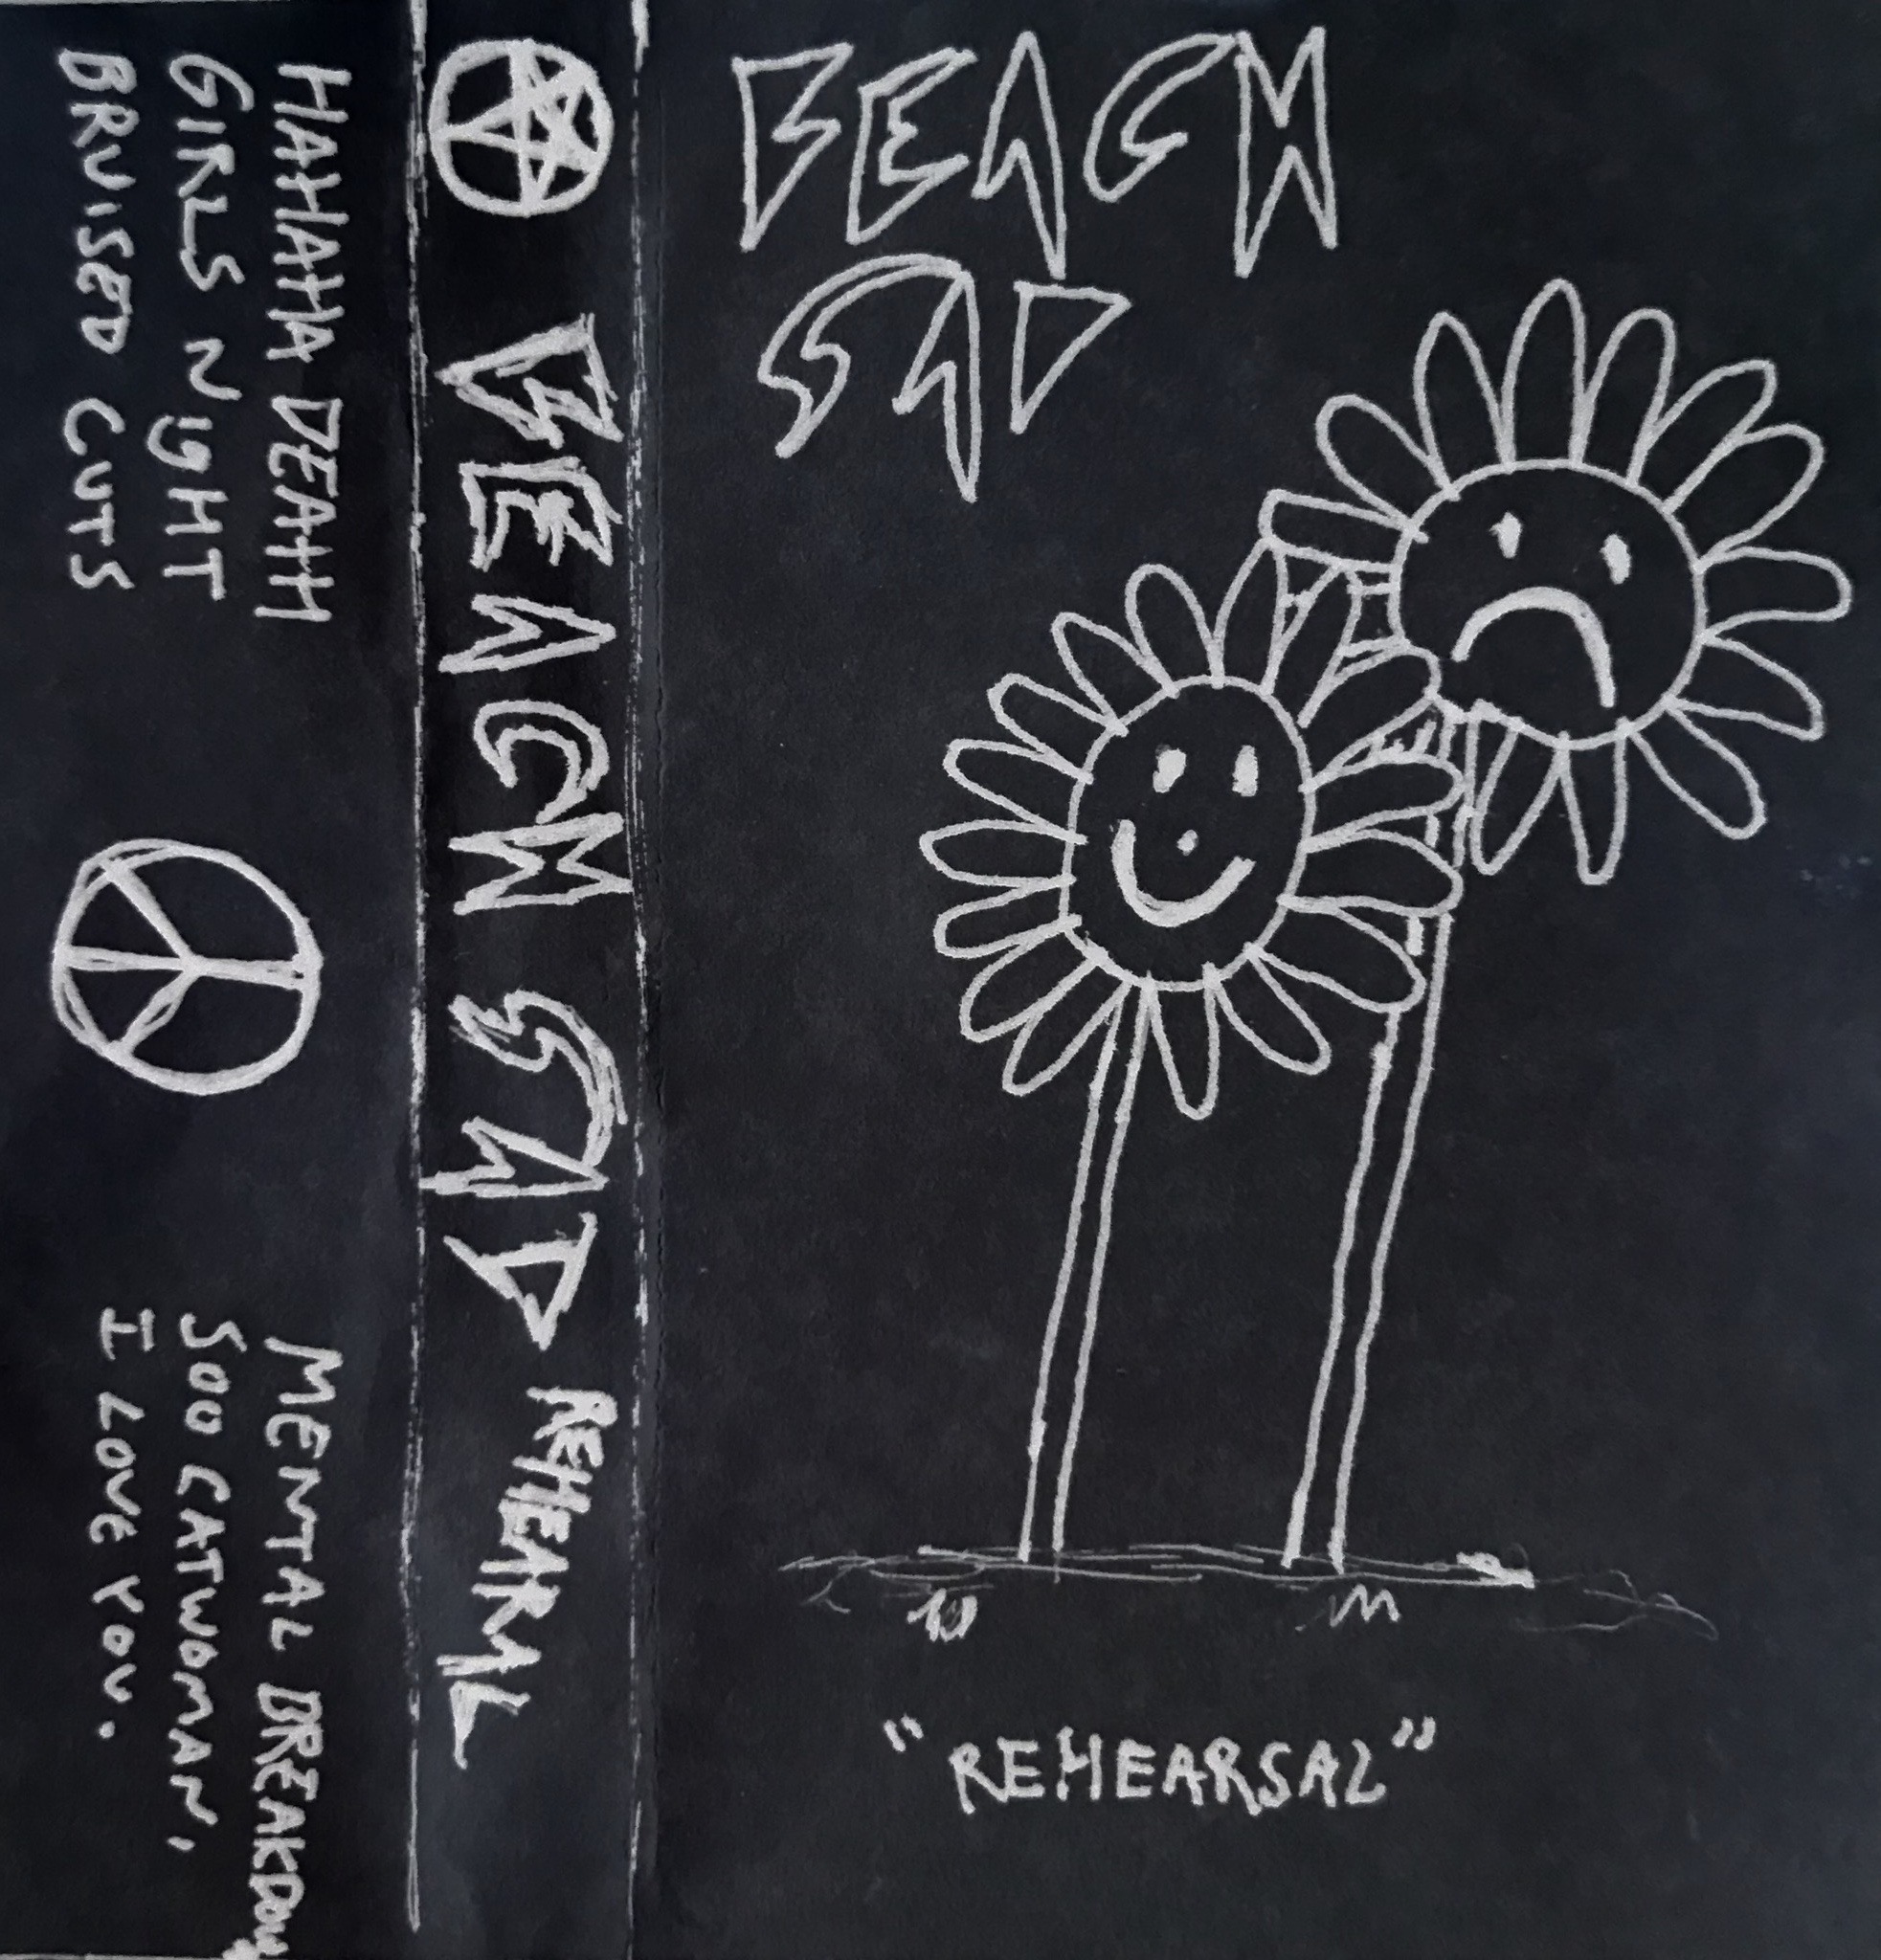 BEACH
SAD
"REHEARSAL"
BEACH SAD REHEARSAL
HAHAHAHA DEATH
GIRLS NIGHT
BRUISED CUTS
MENTAL BREAKDOWN
SOO CATWOMAN,
I LOVE YOU.